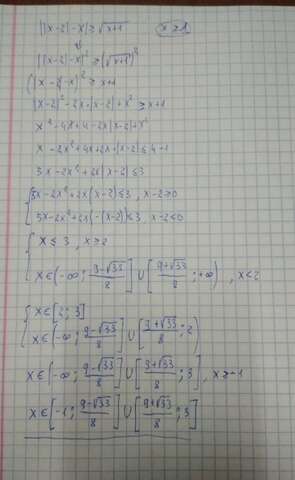 ||x-2|-x| ≥ √x+1    x ≥ 1
⇓
||x-2|-x|² ≥ (√x+1)²
(|x-2|-x)² ≥ x+1
|x-2|²-2x·|x-2|+x² ≥ x+1
x²-4x+4-2x|x-2|+x²
x-2x²+4x+2x·|x-2| ≤ 4-1
5x-2x²+2x|x-2| ≤ 3
{5x-2x²+2x(x-2) ≤ 3, x-2 ≥ 0
5x-2x²+2x(-(x-2)) ≤ 3, x-2 < 0
{x ≤ 3, x ≥ 2
x ∈ (-∞; 9-√33/8] ∪ [9+√33/8; +∞), x < 2
{x ∈ [2; 3]
x ∈ (-∞; 9-√33/8] ∪ [9+√33/8; 2)
x ∈ (-∞; 9-√33/8] ∪ [9+√33/8; 3], x ≥ -1
x ∈ [-1; 9-√33/8] ∪ [9+√33/8; 3]